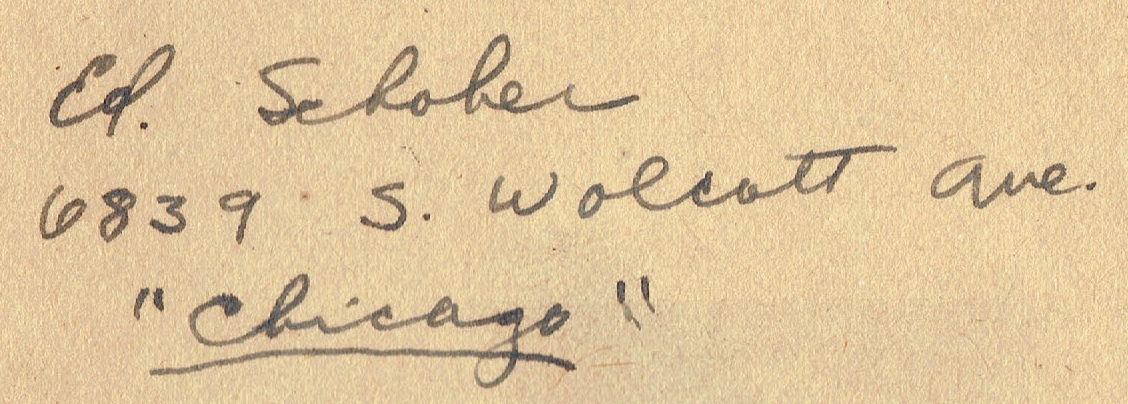 Ed. Schober
6839 S. Wolcott Ave.
"Chicago"